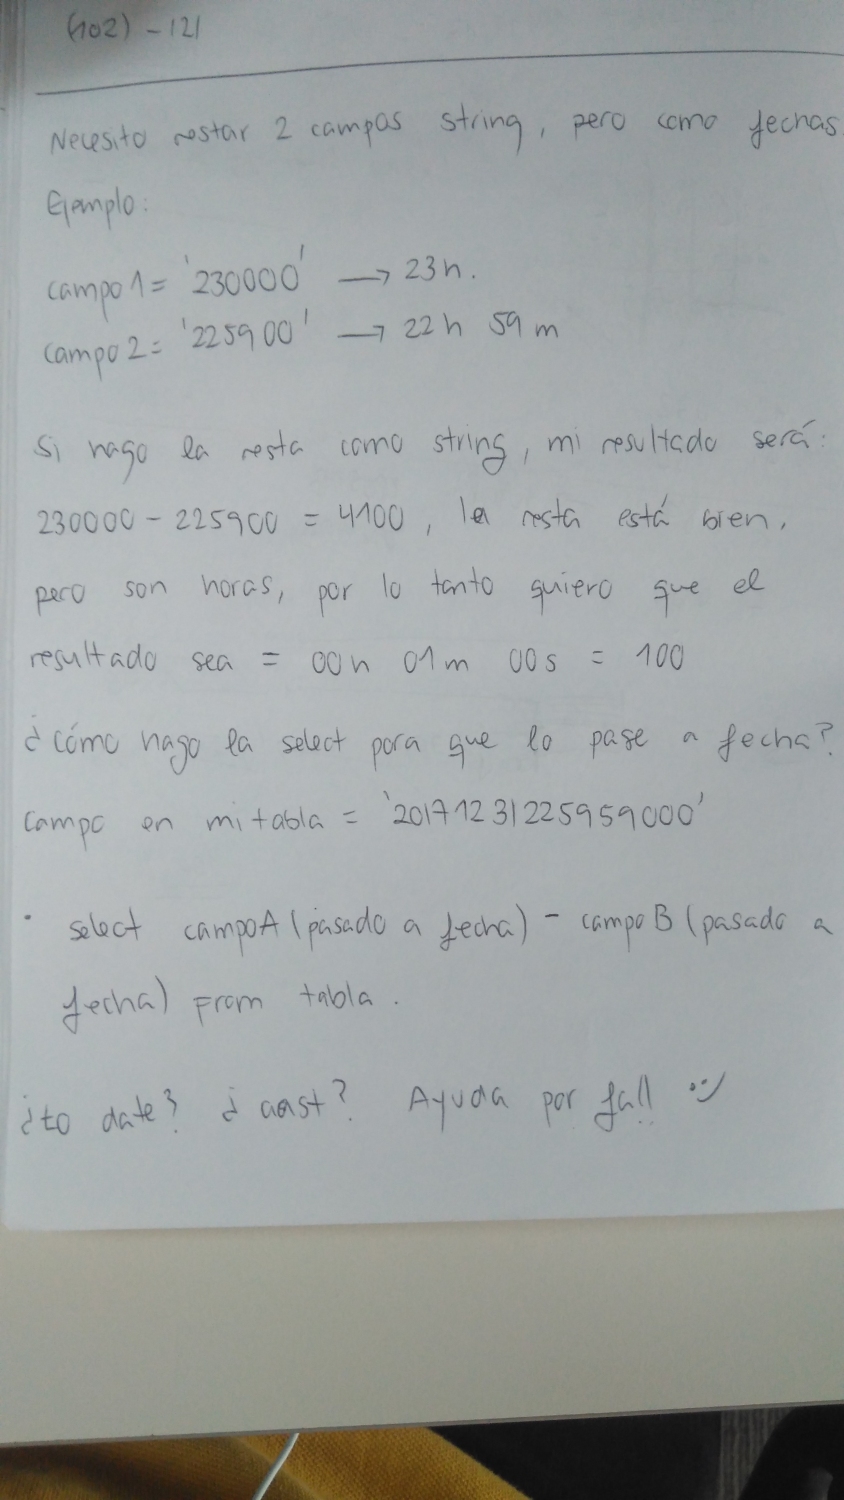 (102) - 121
Necesito restar 2 campos string, pero como fechas.
Ejemplo:
campo1 = '230000' → 23h.
campo2 = '225900' → 22h 59m
Si hago la resta como string, mi resultado será:
230000 - 225900 = 4100, la resta está bien,
pero son horas, por lo tanto quiero que el
resultado sea = 00h 01m 00s = 100
¿cómo hago la select para que lo pase a fecha?
campo en mi tabla = '20171231225959000'
· select campoA (pasado a fecha) - campoB (pasado a
fecha) from tabla.
¿to date? ¿cast? Ayuda por fa!! :)